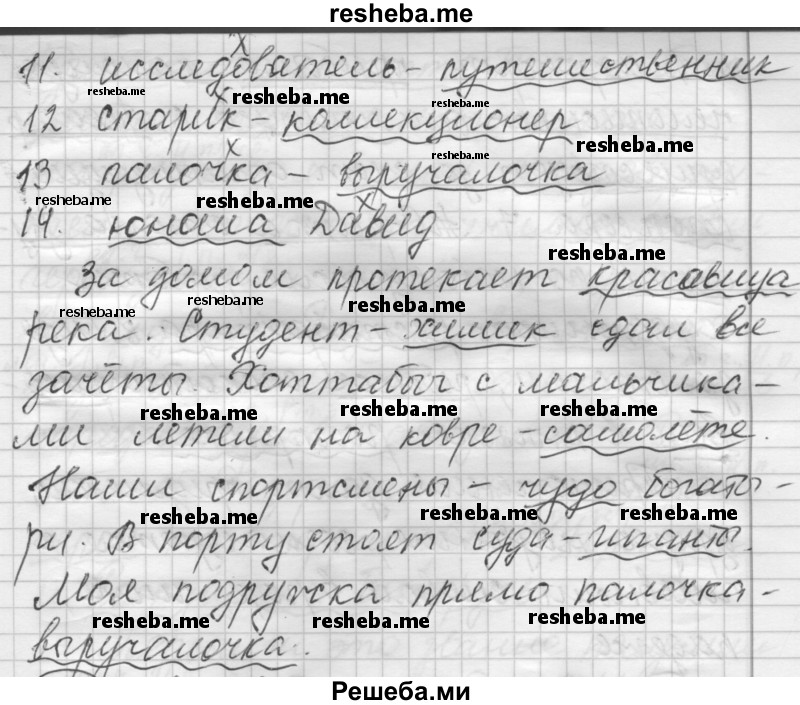 resheba.me
х
11. исследователь - путешественник
resheba.me resheba.me resheba.me
х
12 старик - коллекционер
resheba.me resheba.me
х
13 палочка - выручалочка
resheba.me resheba.me resheba.me
х
14. юноша Давид
resheba.me
За домом протекает красавица
resheba.me resheba.me resheba.me
река. Студент - химик сдал все
зачёты. Хоттабыч с мальчика-
resheba.me resheba.me resheba.me
ми летели на ковре - самолёте.
Наши спортсмены - чудо богаты-
resheba.me resheba.me resheba.me
ри. В порту стоят суда - гиганты.
Моя подружка прямо палочка -
resheba.me resheba.me resheba.me
выручалочка.
Решеба.ми